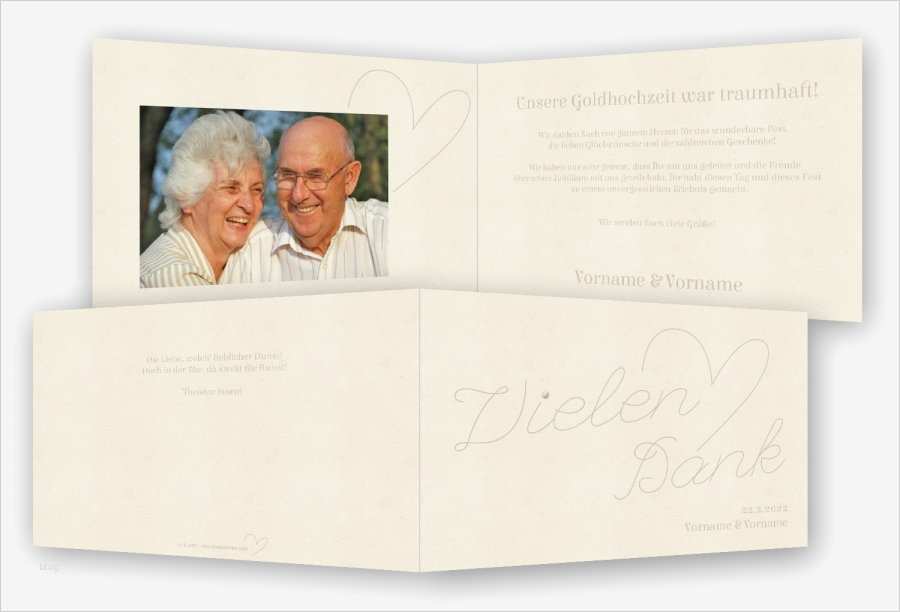 Unsere Goldhochzeit war traumhaft!
Wir danken Euch von ganzem Herzen für das wunderbare Fest,
die lieben Glückwünsche und die zahlreichen Geschenke!
Wir haben uns sehr gefreut, dass Ihr mit uns gefeiert und die Freude
über unser Jubiläum mit uns geteilt habt. Ihr habt diesen Tag und dieses Fest
zu einem unvergesslichen Erlebnis gemacht.
Wir senden Euch viele Grüße!
Vorname & Vorname
Die Liebe, welch' lieblicher Dunst;
Doch in der Ehe, da steckt die Kunst!
Theodor Storm
Vielen
Dank
22.2.2022
Vorname & Vorname